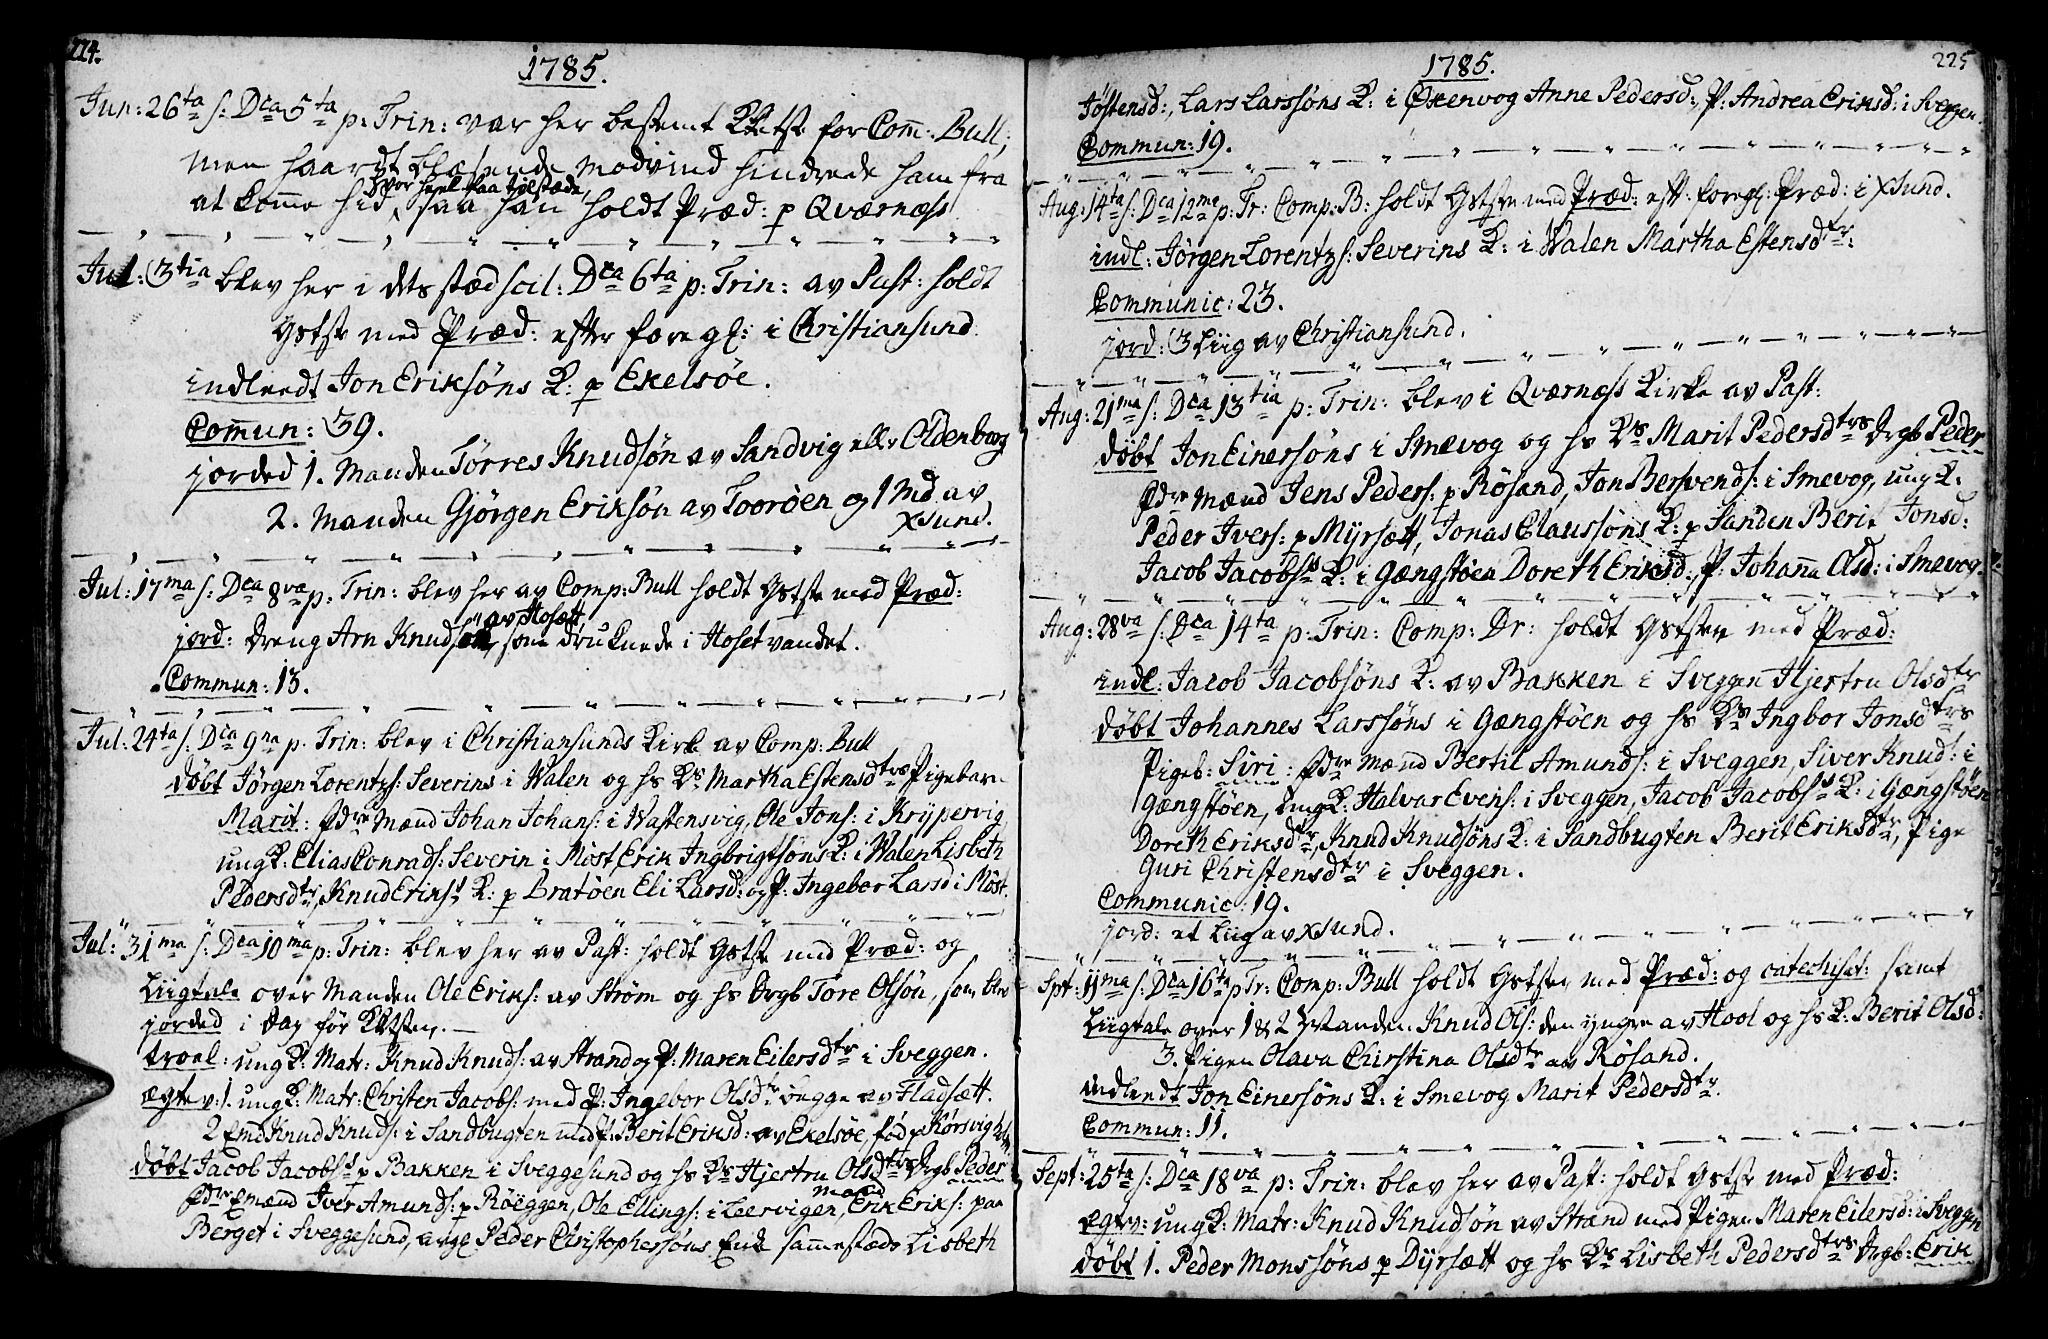 224.
1785.
Jun: 26ta s: Dca 5ta p: Trin: var her bestemt Kketste for Com: Bull;
men haardt blæsende modvind hindrede ham fra
hvor heel faa tilstæde
at komme hid, saa han holdt Præd: p Qværnæss
Jul: 3tia blev her i dets stæd scil: Dca 6ta p: Trin: av Past: holdt
Gstste med Præd: efter foreg: i Christiansund
indleedt Jon Eriksøns K: p Ekelsøe.
Commun: 39.
jorded 1. Manden Tørres Knudsøn av Sandvig eller Oldenborg
2. Manden Gjørgen Eriksøn av Toorøen og 1 Md. av
Xsund.
Jul: 17ma s: Dca 8va p: Trin: blev her av Comp: Bull holdt Gstste med Præd:
av Hosætt,
jord: Dreng Arn Knuds, som druknede i Hosetvandet.
Commun: 13.
Jul: 24ta s: Dca 9na p: Trin: blev i Christiansunds Kirke av Comp: Bull
døbt Jørgen Lorentzs: Severins i Walen og hs Ks Martha Estensdtrs Pigebarn
Marit: fdre Mænd Johan Johans: i Wastensvig, Ole Jons: i Krypervig
ungK: Elias Conrads: Severin i Møst, Erik Ingbrigtsøns K: i Walen Lisbeth
Pedersdtr, Knud Eriks: K: p Bratøen Eli Larsd: og P: Ingebor Larsd i Møst.
Jul: 31ma s: Dca 10ma p: Trin: blev her av Past: holdt Gstste med Præd: og
Liigtale over Manden Ole Eriks: av Strøm og hs Drgb Tore Olsøn, som blev
jorded i Dag før Kketsten.
troel: ungK: Matr: Knud Knuds: av Strand og P: Maren Eilersdtr i Sveggen.
ægtev: 1. ungK: Matr: Christen Jacobs: med P: Ingebor Olsdtr begge av Fladsætt.
2 Emd Knud Knuds: i Sandbugten med P: Berit Eriksd: av Ekelsøe, fød p Korsvig
døbt Jacob Jacobs: p Bakken i Sveggesund og hs Ks Hjertru Olsdtrs Drgb Peder
Mænd
fdre Emænd Iver Amunds: p Røeggen, Ole Ellings: i Leervigen, Erik Eriks: paa
Berget i Sveggesund, avge Peder Christophersøns Enke sammestæds Lisbeth
225
1785.
Jøstensd:, Lars Larssøns K: i Øxenvog Anne Pedersd:, P: Andrea Eriksd: i Sveggen.
Commun: 19.
Aug: 14ta s: Dca 12ma p: Tr: Comp: B: holdt Gstste med Præd: eft: foreg: Præd: i Xsund.
indl: Jørgen Lorentzs: Severins K: i Walen Martha Estensdtr:
Communic: 23.
jord: 3 Liig av Christiansund.
Aug: 21ma s: Dca 13tia p: Trin: blev i Qværnæss Kirke av Past:
døbt Jon Einersøns i Smævog og hs Ks Marit Pedersdtrs Drgb Peder
fdre Mænd Jens Peders: p Røsand, Jon Bersvends: i Smevog, ungK:
Peder Ivers: p Myrsætt, Jonas Claussøns K: p Sanden Berit Jonsd:
Jacob Jacobs: K: i Gængstøen Doreth Eriksd:, P: Johanna Olsd: i Smevog.
Aug: 28va s: Dca 14ta p: Trin: Comp: Dr: holdt Gststen med Præd:
indl: Jacob Jacobsøns K: av Bakken i Sveggen Hjertru Olsdtr
døbt Johannes Larssøns i Gængstøen og hs Ks Ingbor Jonsdtrs
Pigeb: Siri: fdre Mænd Bertil Amunds: i Sveggen, Siver Knuds: i
Gængstøen, ungK: Halvar Evens: i Sveggen, Jacob Jacobs: K: i Gængstøen
Doreth Eriksdtr, Knud Knudsøns K: i Sandbugten Berit Eriksdtr, Pige
Guri Christensdtr i Sveggen.
Communic: 19.
jord: et Liig av Xsund.
Spt: 11ma s: Dca 16ta p Tr: Comp: Bull holdt Gststen med Præd: og catechisat: samt
Liigtale over 1 & 2 Ystanden: Knud Ols: den yngre av Hool og hs K: Berit Olsd:
3. Pigen Olava Chirstina Olsdtr av Røsand.
indleedt Jon Einersøns K: i Smevog Marit Pedersdtr.
Commun: 11.
Sept: 25ta s: Dca 18va p: Trin: blev her av Past: holdt Gstste med Præd:
ægtev: ungK: Matr: Knud Knudsøn av Strand med Pigen Maren Eilersd: i Sveggen
døbt 1. Peder Monssøns p Dyrsætt og hs Ks Lisbeth Pedersdtrs Drgb: Erik